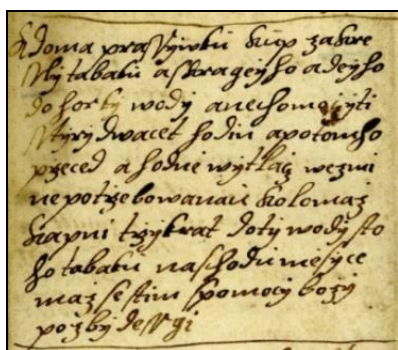 kdoma prassywku kup za kre
slis tabaku a skrageyho a deyho
do horky wody a nechomoczyti
sstyry dwacet hodin a potomho
przeced a hodne wytlacz wezmi
nepotrzebowanau kolomaz
kapni trzykrat do ty wody sto
ho tabaku na schodu mesyce
maz se stim spomocy bozy
pozby